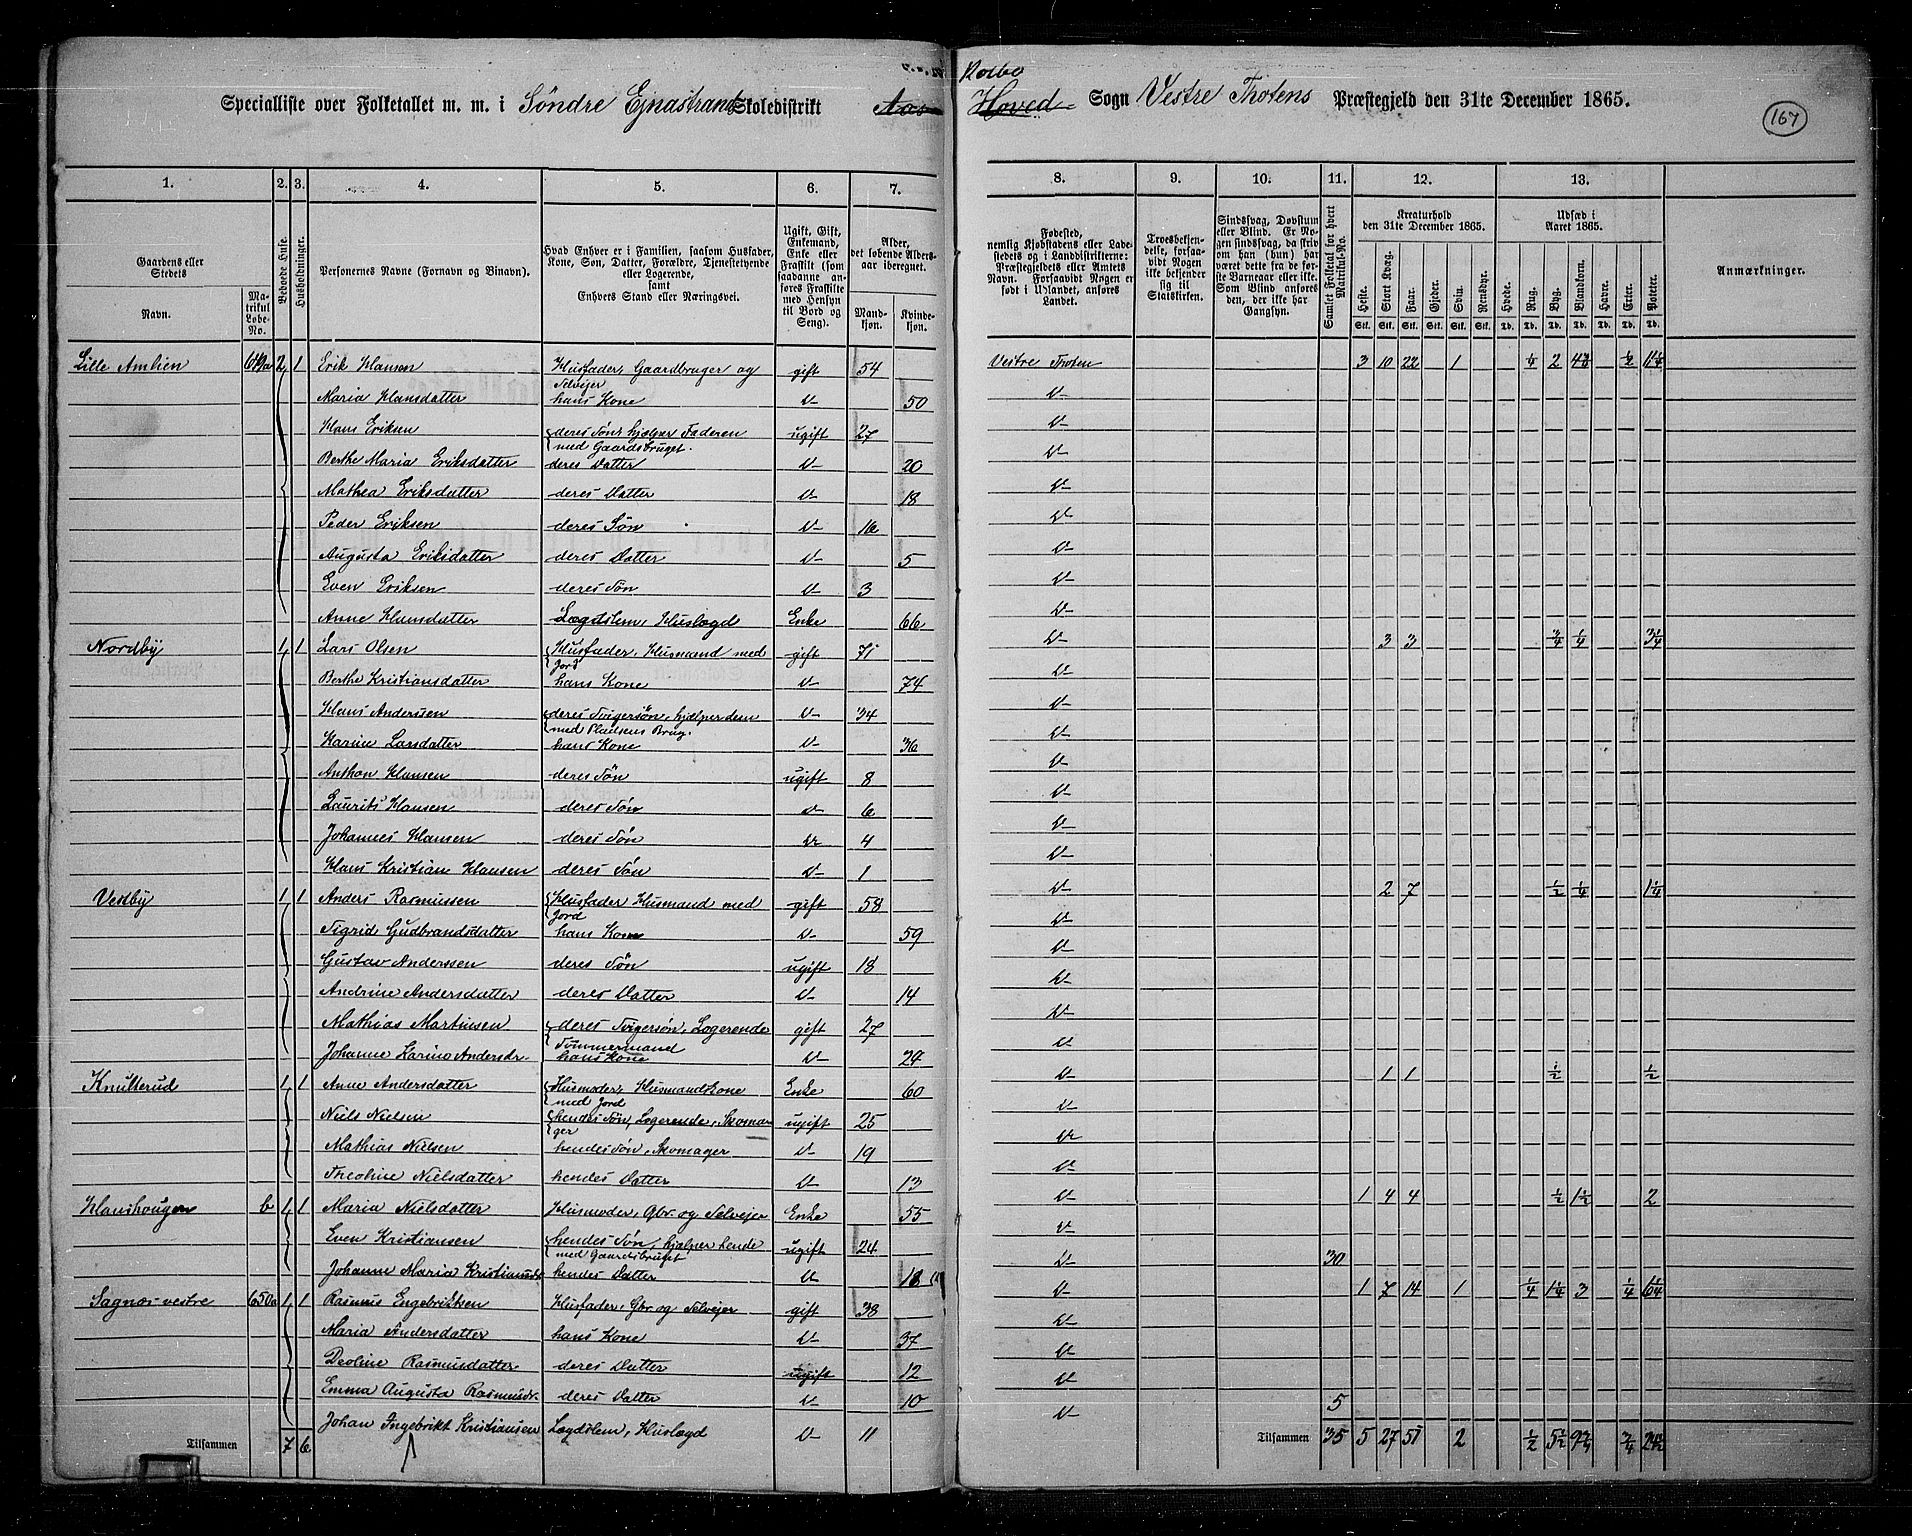 Specialliste over Folketallet m. m. i Söndre Ejnastrand Skoledistrikt Aas
Kolbo
Hoved- Sogn Vestre Thotens Præstegjeld den 31te December 1865.
167
1. 2. 3. 4. 5. 6. 7. 8. 9. 10. 11. 12. 13.
Gaardens eller Stedets
Navn.
Matrikul Løbe-No.
Beboede Huse.
Husholdninger.
Personernes Navne (Fornavn og Binavn).
Hvad Enhver er i Familien, saasom Husfader, Kone, Søn, Datter, Forældre, Tjenestetyende eller Logerende,
samt
Enhvers Stand eller Næringsvei.
Ugift, Gift, Enkemand, Enke eller Fraskilt (som saadanne anføres Fraskilte med Hensyn til Bord og Seng).
Alder, det løbende Aldersaar iberegnet.
Mandkjøn.
Kvindekjøn.
Fødested, nemlig Kjøbstadens eller Ladestedets og i Landdistrikterne: Præstegjeldets eller Amtets Navn. Forsaavidt Nogen er født i Udlandet, anføres Landet.
Troesbekjendelse, forsaavidt Nogen ikke bekjender sig til Statskirken.
Sindssvag, Døvstum eller Blind. Er Nogen sindssvag, da skrives om han (hun) har været dette fra de første Barneaar eller ikke. Som Blind anføres den, der ikke har Gangsyn.
Samlet Folketal for hvert Matrikul-No.
Kreaturhold den 31te December 1865.
Heste. Stort Kvæg. Faar. Gjeder. Svin. Rensdyr.
Stk. Stk. Stk. Stk. Stk. Stk.
Udsæd i Aaret 1865.
Hvede. Rug. Byg. Blandkorn. Havre. Erter. Poteter.
Td. Td. Td. Td. Td. Td. Td.
Anmærkninger.
Lille Amlien 649a 2 1 Erik Hansen Husfader, Gaardbruger og Selvejer gift 54 Vestre Thoten 3 10 22 1 1/4 2 1/2
Maria Hansdatter hans Kone D- 50 D-
Hans Eriksen deres Søn, hjælper Faderen med Gaardsbruget. ugift 27 D-
Berthe Maria Eriksdatter deres Datter D- 20 D-
Mathea Eriksdatter deres Datter D- 18 D-
Peder Eriksen deres Søn D- 16 D-
Augusta Eriksdatter deres Datter D- 5 D-
Even Eriksen deres Søn D- 3 D-
Anne Hansdatter Lægdslem, Huslægd Enke 66 D-
Nordby 1 1 Lars Olsen Husfader, Husmand med Jord gift 71 D- 3 3 3/4 1/4 3 1/4
Berthe Kristiansdatter hans Kone D- 74 D-
Hans Anderssen deres Svigersøn, hjælper dem med Pladsens Brug. D- 34 D-
Karine Larsdatter hans Kone D- 36 D-
Anthon Hansen deres Søn ugift 8 D-
Laurits Hansen deres Søn D- 6 D-
Johannes Hansen deres Søn D- 4 D-
Hans Kristian Hansen deres Søn D- 1 D-
Vestby 1 1 Anders Rasmussen Husfader Husmand med Jord gift 58 D- 2 7 1/2 1/4 1 1/4
Sigrid Gudbrandsdatter hans Kone D- 59 D-
Gustav Anderssen deres Søn ugift 18 D-
Andrine Andersdatter deres Datter D- 14 D-
Mathias Martinsen deres Svigersøn, Logerende Tømmermand gift 27 D-
Johanne Karine Andersdr. hans Kone D- 24 D-
Knutterud 1 1 Anne Andersdatter Husmoder, Husmandskone med Jord Enke 60 D- 1 1 1/2 1/2
Niels Nielsen hendes Søn, Logerende, Skomager ugift 25 D-
Mathias Nielsen hendes Søn, Skomager D- 19 D-
Theoline Nielsdatter hendes Datter D- 13 D-
Hanshougen b 1 1 Maria Nielsdatter Husmoder, Gbr. og Selvejer Enke 55 D- 1 4 4 1/2 1 1/2 2
Even Kristiansen hendes Søn, hjælper hende med Gaardsbruget ugift 24 D-
Johanne Maria Kristiansdt hendes Datter D- 18 D- 30
Sagnæs vestre 650a 1 1 Rasmus Engebriktsen Husfader, Gbr. og Selvejer gift 38 D- 1 7 14 1 1/4 1 1/4 3 1/4 6 1/4
Maria Andersdatter hans Kone D- 37 D-
Deoline Rasmusdatter deres Datter ugift 12 D-
Emma Augusta Rasmusdr. deres Datter D- 10 D-
Johan Ingebrikt Kristiansen Lægdslem, Huslægd D- 11 D- 5
Tilsammen 7 6
Tilsammen 35 5 27 51 2 1/2 5 1/2 9 3/4 3/4 24 1/2